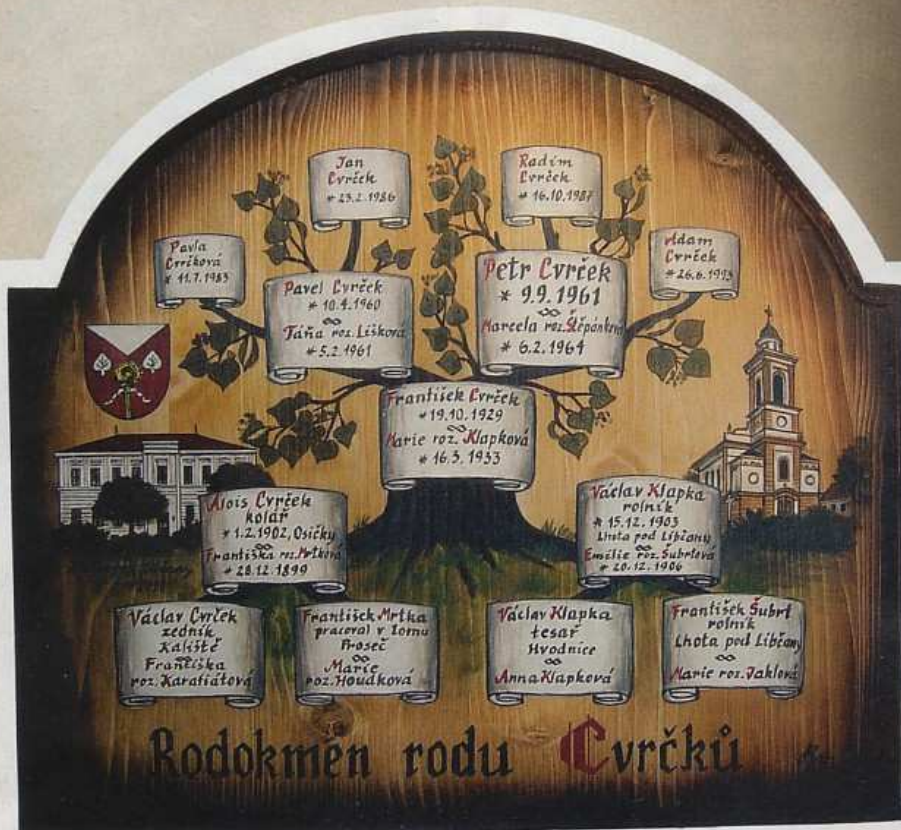 Jan
Cvrček
* 23.2.1986
Radim
Cvrček
* 16.10.1987
Pavla
Cvrčková
* 11.7.1983
Pavel Cvrček
* 10.4.1960
∞
Táňa roz. Lišková
* 5.2.1961
Petr Cvrček
* 9.9.1961
∞
Marcela roz. Štěpánková
* 6.2.1964
Adam
Cvrček
* 26.6.1993
František Cvrček
* 19.10.1929
∞
Marie roz. Klapková
* 16.3.1933
Alois Cvrček
kolář
* 1.2.1902, Osičky
∞
Františka roz. Mrtková
* 28.12.1899
Václav Klapka
rolník
* 15.12.1903
Lhota pod Libčany
∞
Emilie roz. Šubrtová
* 20.12.1906
Václav Cvrček
zedník
Kaliště
∞
Františka
roz. Karafiátová
František Mrtka
pracoval v lomu
Proseč
∞
Marie
roz. Houdková
Václav Klapka
tesař
Hvodnice
∞
Anna Klapková
František Šubrt
rolník
Lhota pod Libčany
∞
Marie roz. Jaklová
Rodokmen rodu Cvrčků